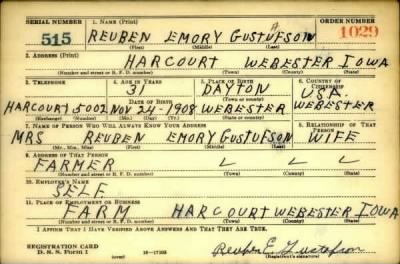 SERIAL NUMBER 1. NAME (Print) ORDER NUMBER
515 REUBEN EMORY GUSTUFSON 1029
A
(First) (Middle) (Last)
2. ADDRESS (Print)
HARCOURT WEBESTER IOWA
(Number and street or R. F. D. number) (Town) (County) (State)
3. TELEPHONE 4. AGE IN YEARS 5. PLACE OF BIRTH 6. COUNTRY OF CITIZENSHIP
31 DAYTON U.S.A.
DATE OF BIRTH (Town or county)
HARCOURT 5002 NOV 24-1908 WEBESTER WEBESTER
(Exchange) (Number) (Mo.) (Day) (Yr.) (State or country)
7. NAME OF PERSON WHO WILL ALWAYS KNOW YOUR ADDRESS 8. RELATIONSHIP OF THAT PERSON
MRS REUBEN EMORY GUSTUFSON WIFE
(Mr., Mrs., Miss) (First) (Middle) (Last)
9. ADDRESS OF THAT PERSON
FARMER
(Number and street or R. F. D. number) (Town) (County) (State)
10. EMPLOYER'S NAME
SELF
11. PLACE OF EMPLOYMENT OR BUSINESS
FARM HARCOURT WEBESTER IOWA
(Number and street or R. F. D. number) (Town) (County) (State)
I AFFIRM THAT I HAVE VERIFIED ABOVE ANSWERS AND THAT THEY ARE TRUE.
REGISTRATION CARD
D. S. S. Form 1 16-17105 Reuben E. Gustafson
(Registrant's signature)